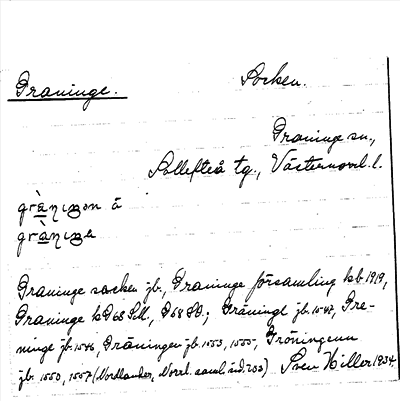 Graninge.
Socken.
Graninge sn.,
Sollefteå tg., Västernorrl. l.
Graninge socken jb., Graninge församling kb. 1919,
Graninge k D 68 SM., D 68 SO.; Gräninge jb. 1542, Gre-
ninge jb. 1546, Gräningen jb. 1553, 1555, Gröningenn
jb. 1550, 1557 (Nordlander, Norrl. saml. sid. 203) Sven Hiller 1934.